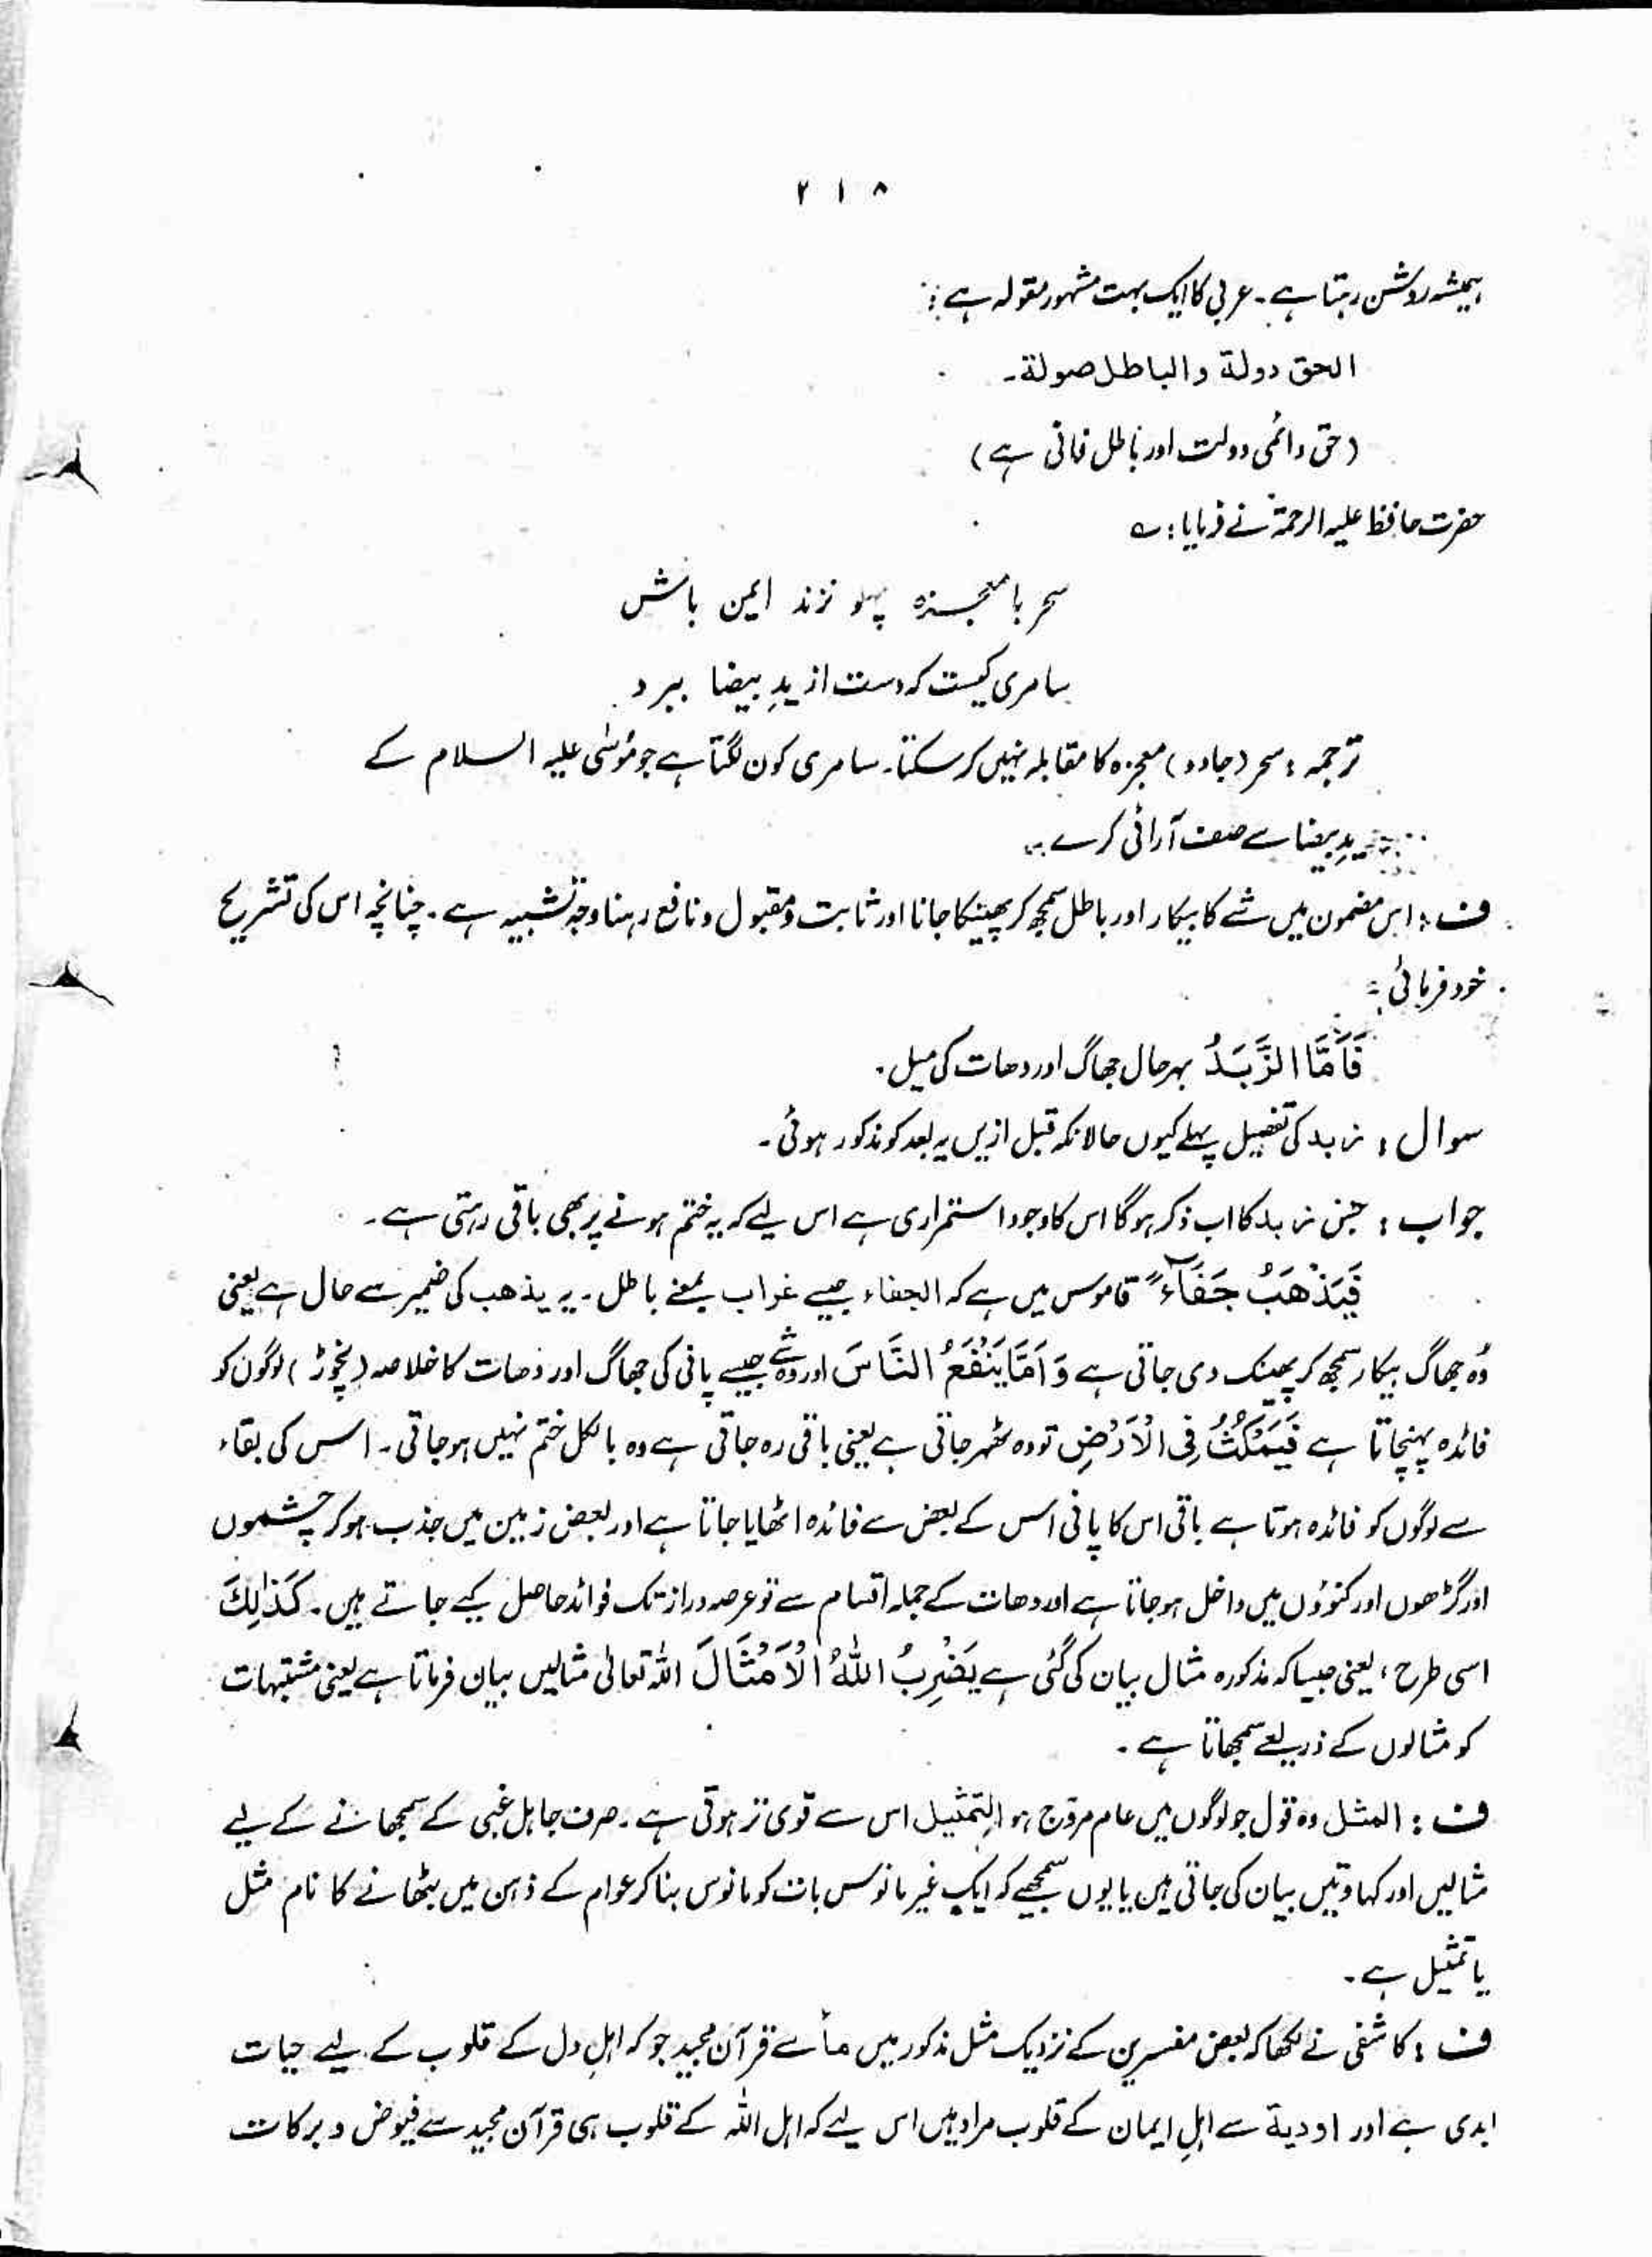 ۲۱۸
ہمیشہ روشن رہتا ہے۔ عربی کا ایک بہت مشہور مقولہ ہے :
الحق دولة والباطل صولة۔
(حق دائمی دولت اور باطل فانی ہے)
حضرت حافظ علیہ الرحمۃ نے فرمایا : ؎
سحر با معجزہ پہلو نزند ایمن باش
سامری کیست کہ دست از یدِ بیضا ببرد
ترجمہ : سحر (جادو) معجزہ کا مقابلہ نہیں کر سکتا۔ سامری کون لگتا ہے جو موسٰی علیہ السلام کے
یدِ بیضا سے صف آرائی کرے۔
ف : اس مضمون میں شے کا بیکار اور باطل سمجھ کر پھینکا جانا اور ثابت و مقبول و نافع رہنا وجہ تشبیہ ہے۔ چنانچہ اس کی تشریح
خود فرمائی :
فَاَمَّا الزَّبَدُ بہرحال جھاگ اور دھات کی میل۔
سوال : زبد کی تفصیل پہلے کیوں حالانکہ قبل ازیں یہ بعد کو مذکور ہوئی۔
جواب : جس زبد کا اب ذکر ہوگا اس کا وجود استمراری ہے اس لیے کہ یہ ختم ہونے پر بھی باقی رہتی ہے۔
فَیَذْھَبُ جَفَآءً قاموس میں ہے کہ الجفاء جیسے غراب بمعنے باطل۔ یہ یذھب کی ضمیر سے حال ہے یعنی
وُہ جھاگ بیکار سمجھ کر پھینک دی جاتی ہے وَ اَمَّا یَنْفَعُ النَّاسَ اور وہ شے جیسے پانی کی جھاگ اور دھات کا خلاصہ (نچوڑ) لوگوں کو
فائدہ پہنچاتا ہے فَیَمْکُثُ فِی الْاَرْضِ تو وہ ٹھہر جاتی ہے یعنی باقی رہ جاتی ہے وہ بالکل ختم نہیں ہو جاتی۔ اس کی بقاء
سے لوگوں کو فائدہ ہوتا ہے باقی اس کا پانی اس کے بعض سے فائدہ اٹھایا جاتا ہے اور بعض زمین میں جذب ہو کر چشموں
اور گڑھوں اور کنوؤں میں داخل ہو جاتا ہے اور دھات کے جملہ اقسام سے تو عرصہ دراز تک فوائد حاصل کیے جاتے ہیں۔ کَذٰلِکَ
اسی طرح ، یعنی جیسا کہ مذکورہ مثال بیان کی گئی ہے یَضْرِبُ اللّٰہُ الْاَمْثَالَ اللہ تعالٰی مثالیں بیان فرماتا ہے یعنی مشتبہات
کو مثالوں کے ذریعے سمجھاتا ہے۔
ف : المثل وہ قول جو لوگوں میں عام مروّج ہو التمثیل اس سے قوی تر ہوتی ہے۔ صرف جاہل غبی کے سمجھانے کے لیے
مثالیں اور کہاوتیں بیان کی جاتی ہیں یا یوں سمجھیے کہ ایک غیر مانوس بات کو مانوس بنا کر عوام کے ذہن میں بٹھانے کا نام مثل
یا تمثیل ہے۔
ف : کاشفی نے لکھا کہ بعض مفسرین کے نزدیک مثل مذکور میں مأ سے قرآن مجید جو کہ اہلِ دل کے قلوب کے لیے حیات
ابدی ہے اور اودیة سے اہلِ ایمان کے قلوب مراد ہیں اس لیے کہ اہل اللہ کے قلوب ہی قرآن مجید سے فیوض و برکات